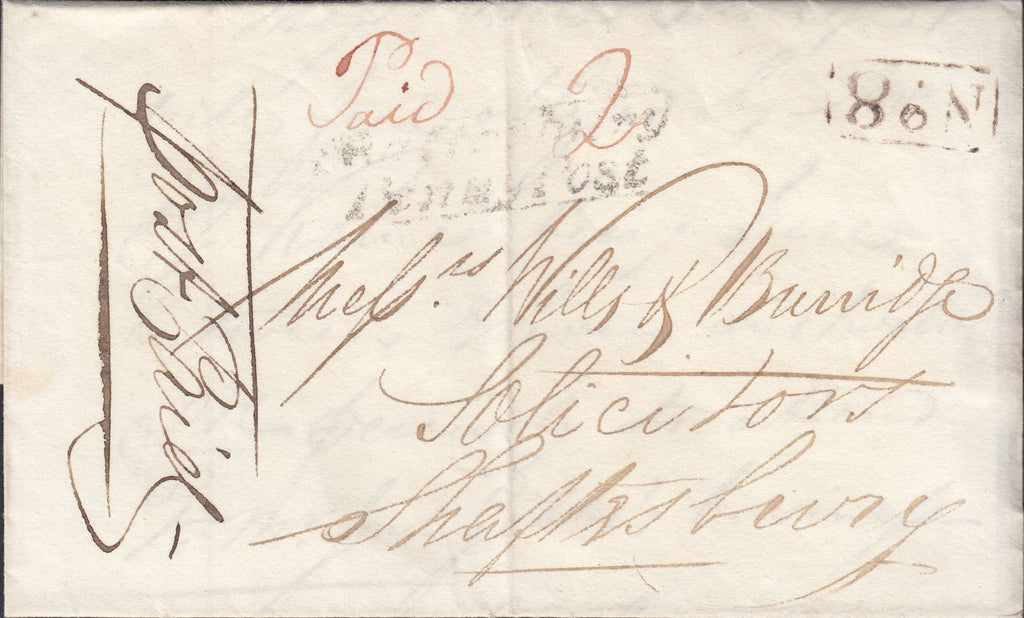 Paid 2
8 o N
Penny Post
Messrs Wills & Burridge
Solicitors
Shaftesbury
Post Paid